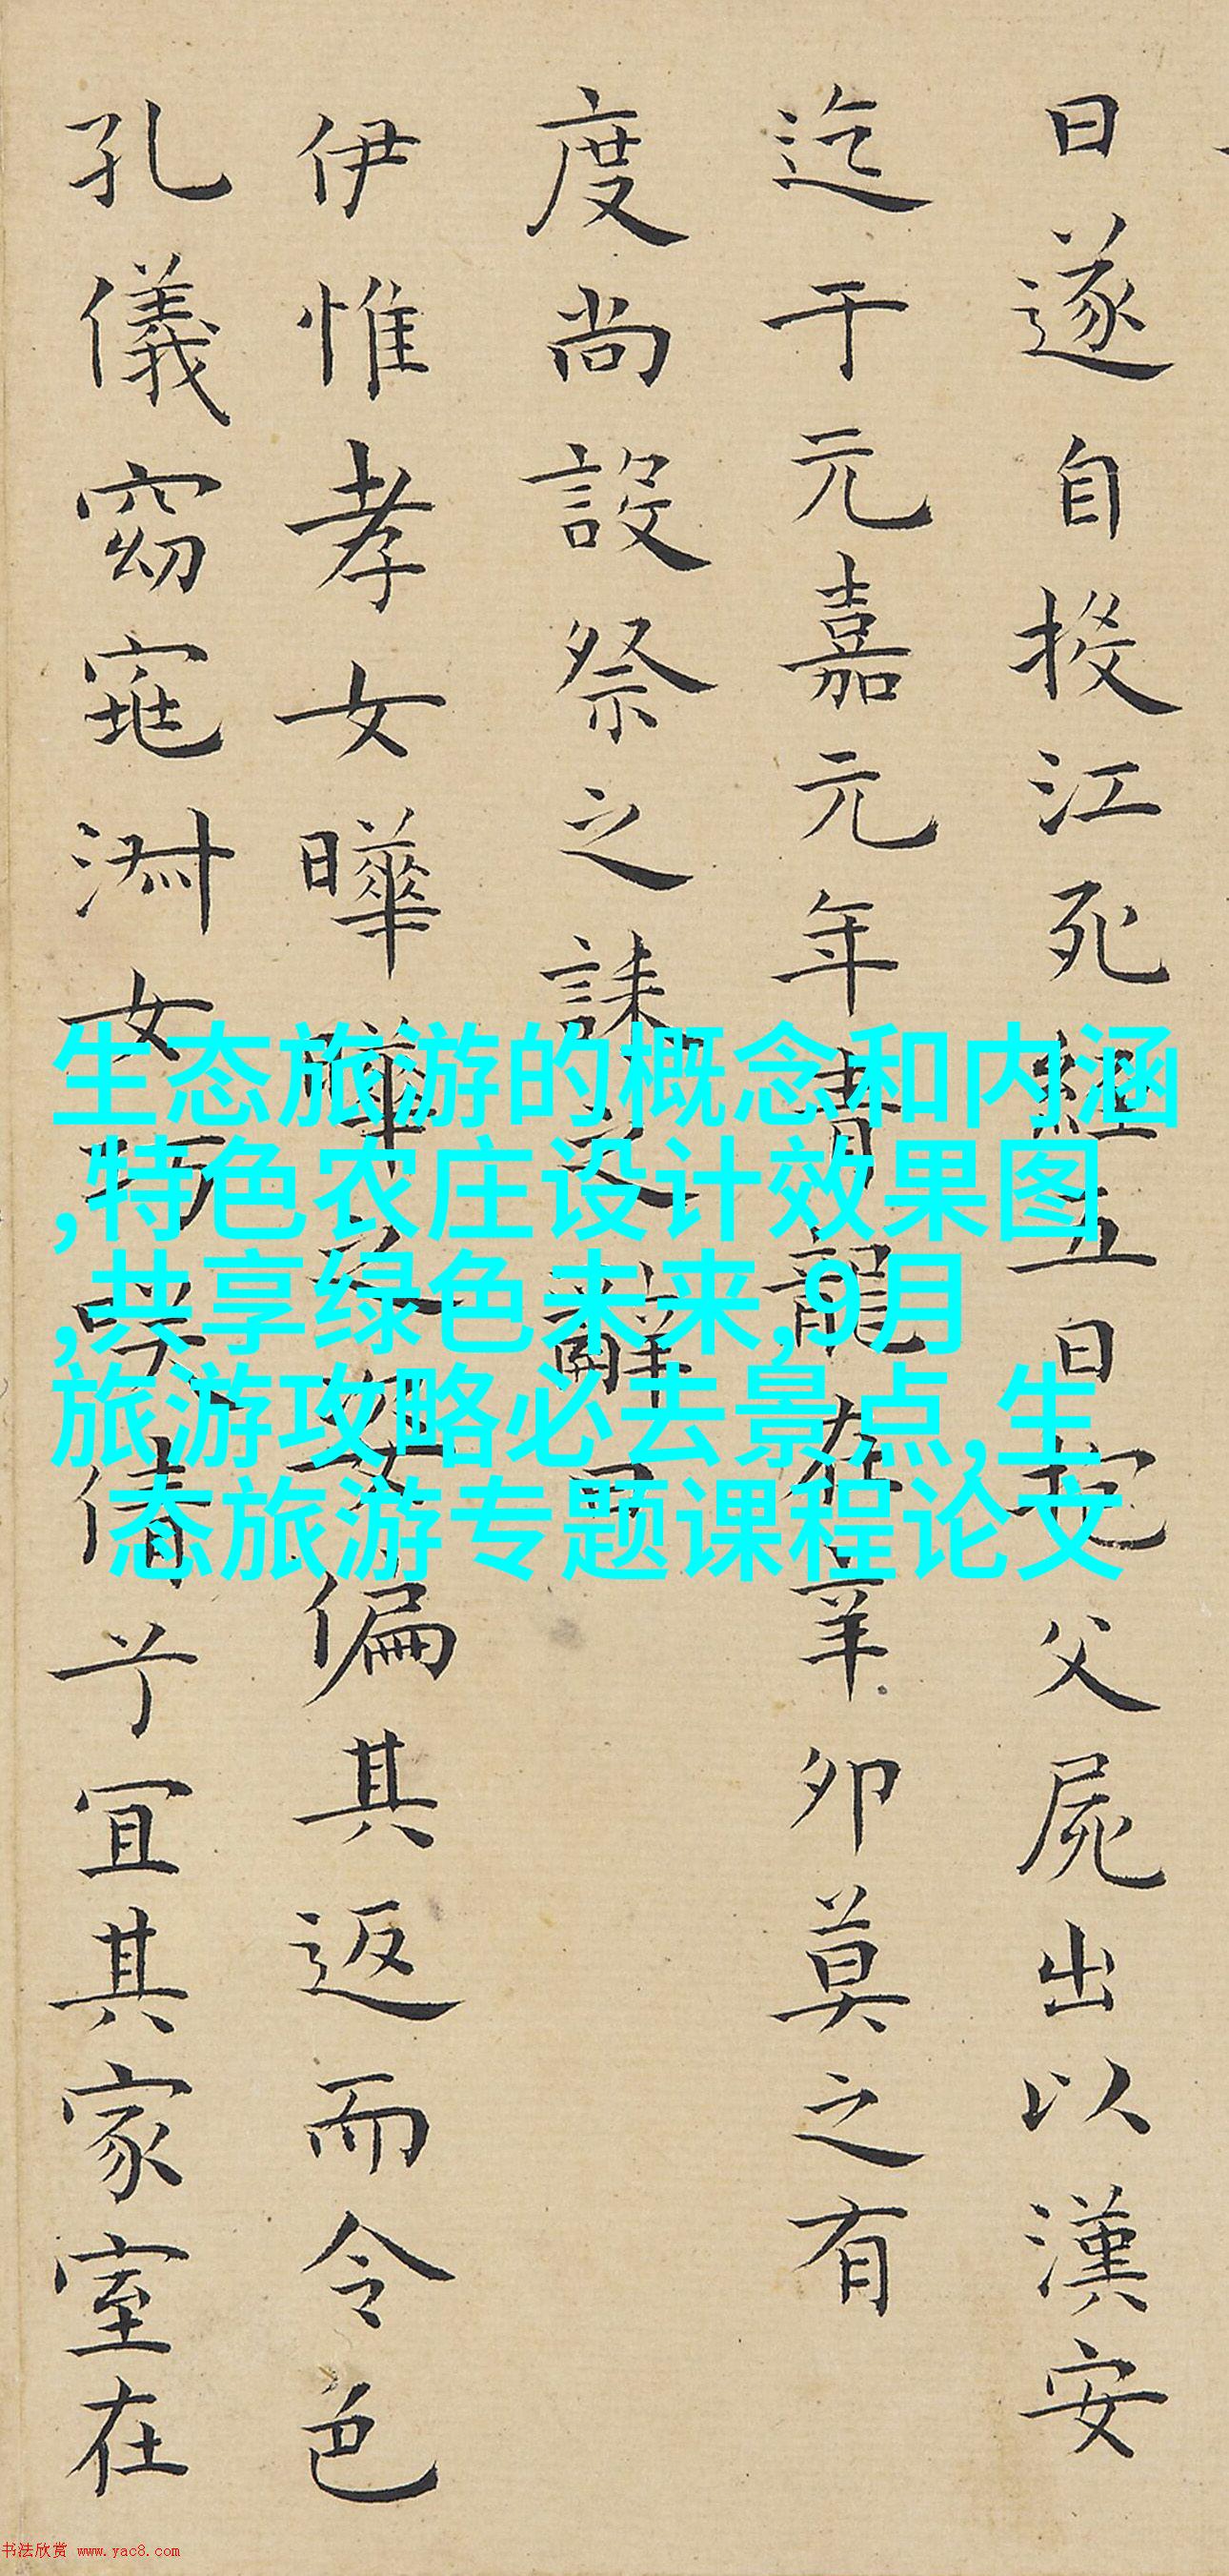 日遂自投江死經五日抱父屍出以漢安
迄于元嘉元年青龍在辛卯莫之有
度尚設祭之誄之辭曰
伊惟孝女曄曄之姿偏其返而令色
孔儀窈窕淑女巧笑倩兮宜其家室在
生态旅游的概念和内涵
,特色农庄设计效果图
,共享绿色未来,9月
旅游攻略必去景点,生
态旅游专题课程论文
书法欣赏 www.yac8.com